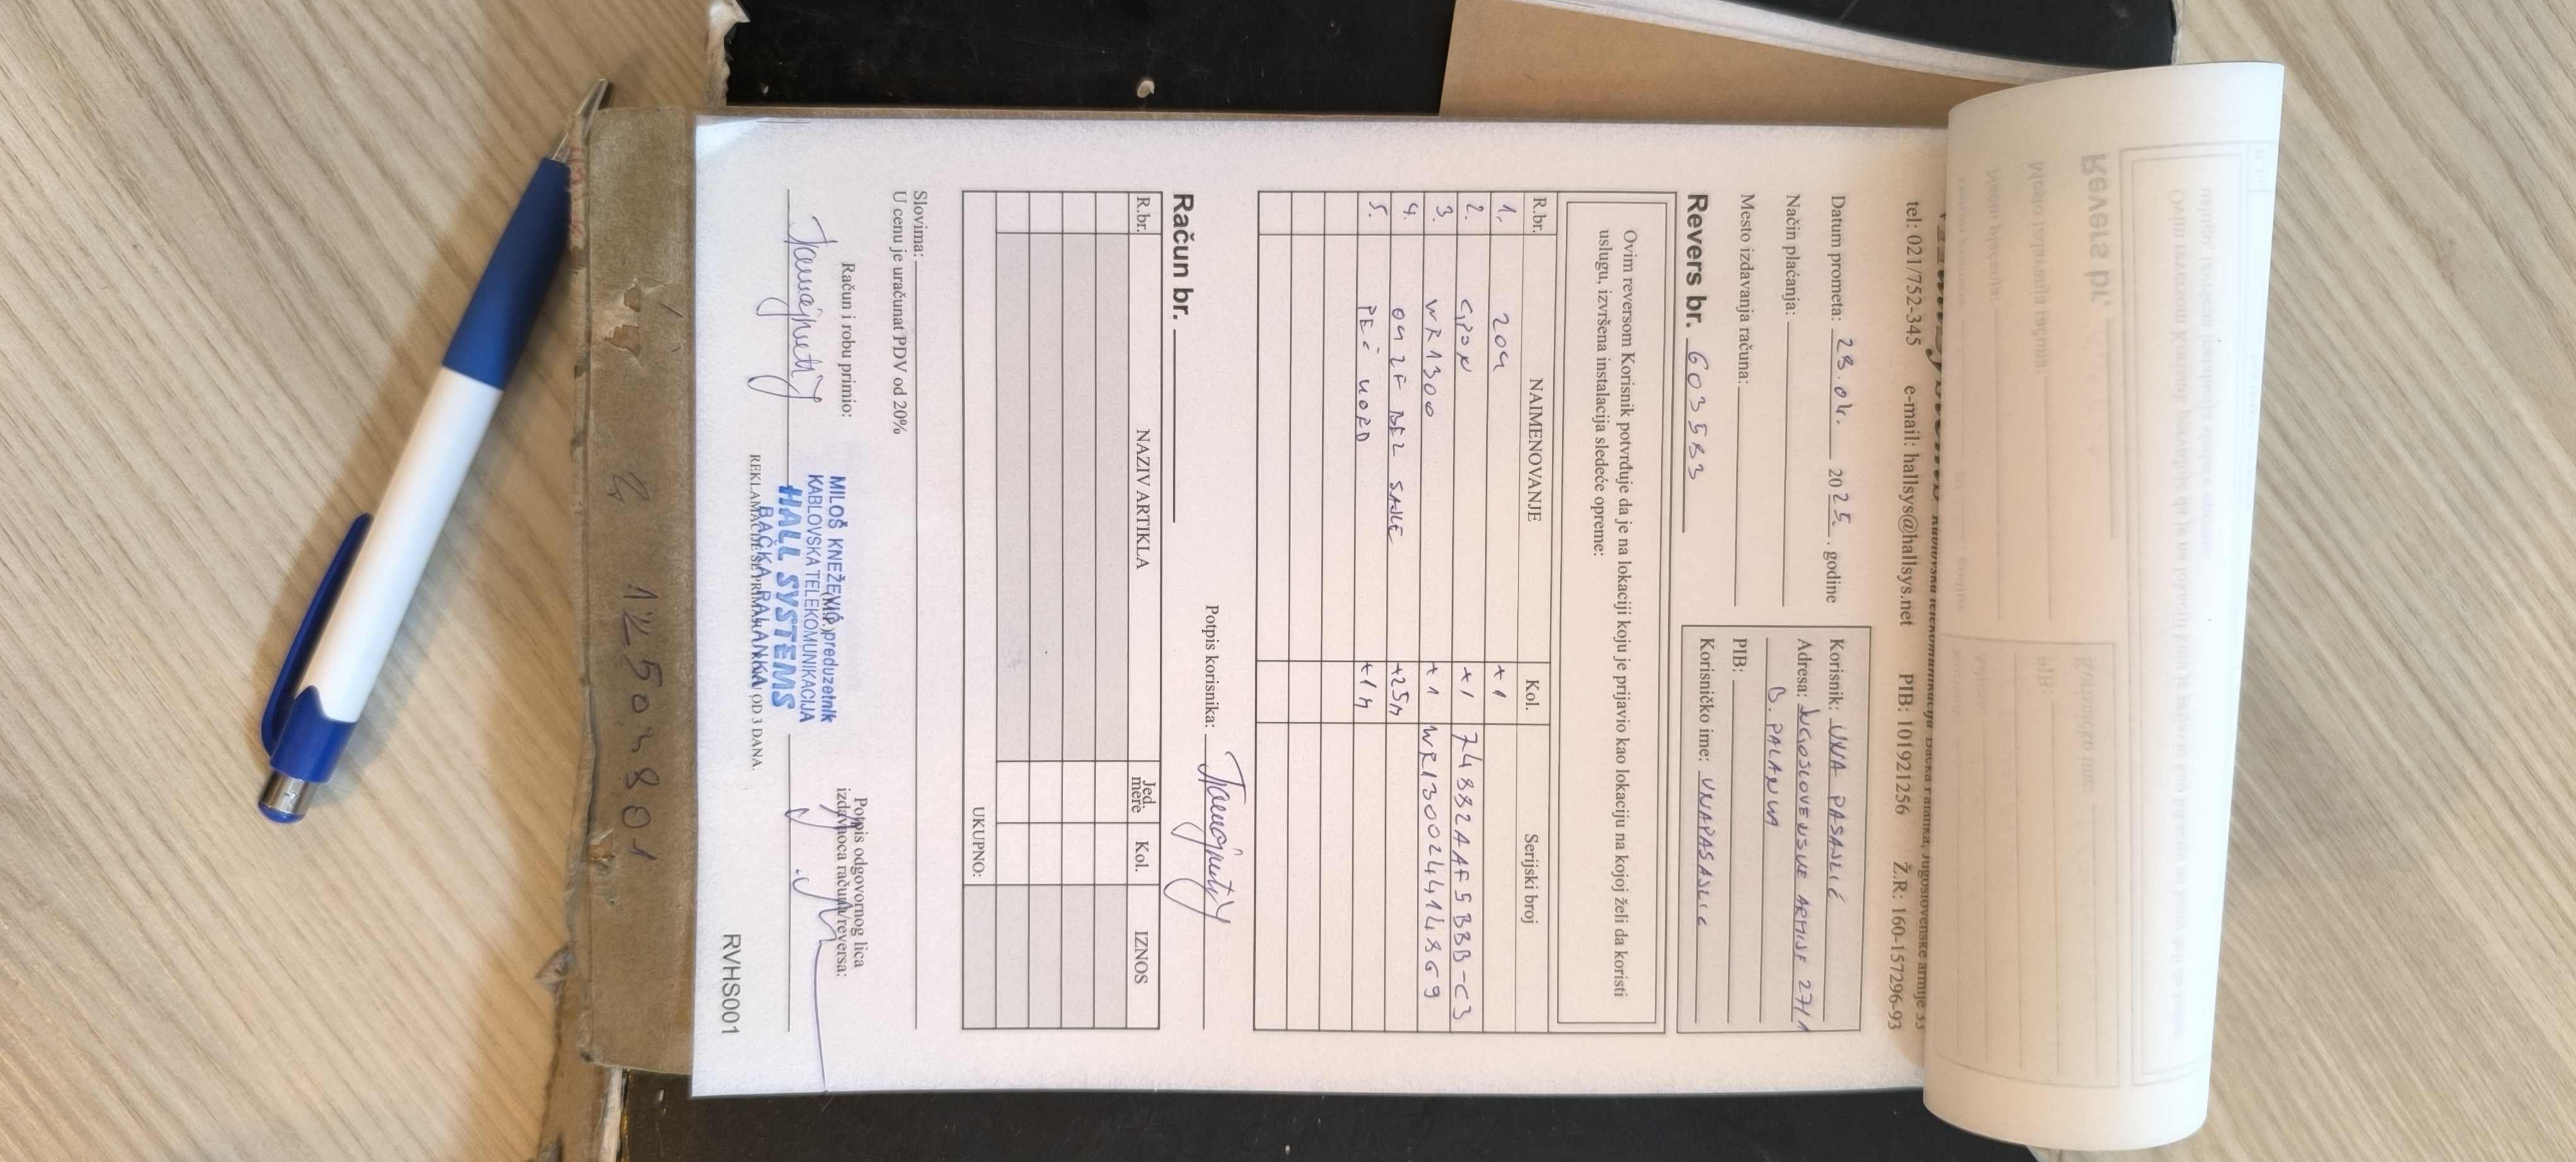 Kablovska telekomunikacija Bačka Palanka, Jugoslovenske armije 33
tel: 021/752-345 e-mail: hallsys@hallsys.net PIB: 101921256 Ž.R: 160-157296-93
Datum prometa: 23.04. 2025. godine
Način plaćanja:
Mesto izdavanja računa:
Korisnik: UNA PASAJLIĆ
Adresa: JUGOSLOVENSKE ARMIJE 27/1
B. PALANKA
PIB:
Korisničko ime: UNAPASAJLIC
Revers br. 603583
Ovim reversom Korisnik potvrđuje da je na lokaciji koju je prijavio kao lokaciju na kojoj želi da koristi
uslugu, izvršena instalacija sledeće opreme:
R.br. NAIMENOVANJE Kol. Serijski broj
1. 204 +1
2. GPON +1 74882AAF5BBB-C3
3. WR1300 +1 WR1300244414869
4. 04 2F BEZ SAJLE +25M
5. PEČ KORD +1M
Potpis korisnika:
Račun br.
R.br. NAZIV ARTIKLA Jed. mere Kol. IZNOS
UKUPNO:
Slovima:
U cenu je uračunat PDV od 20%
Račun i robu primio:
(M.P.)
Potpis odgovornog lica
izdavaoca računa/reversa:
MILOŠ KNEŽEVIĆ preduzetnik
KABLOVSKA TELEKOMUNIKACIJA
HALL SYSTEMS
BAČKA PALANKA
REKLAMACIJE SE PRIMAJU U ROKU OD 3 DANA.
RVHS001